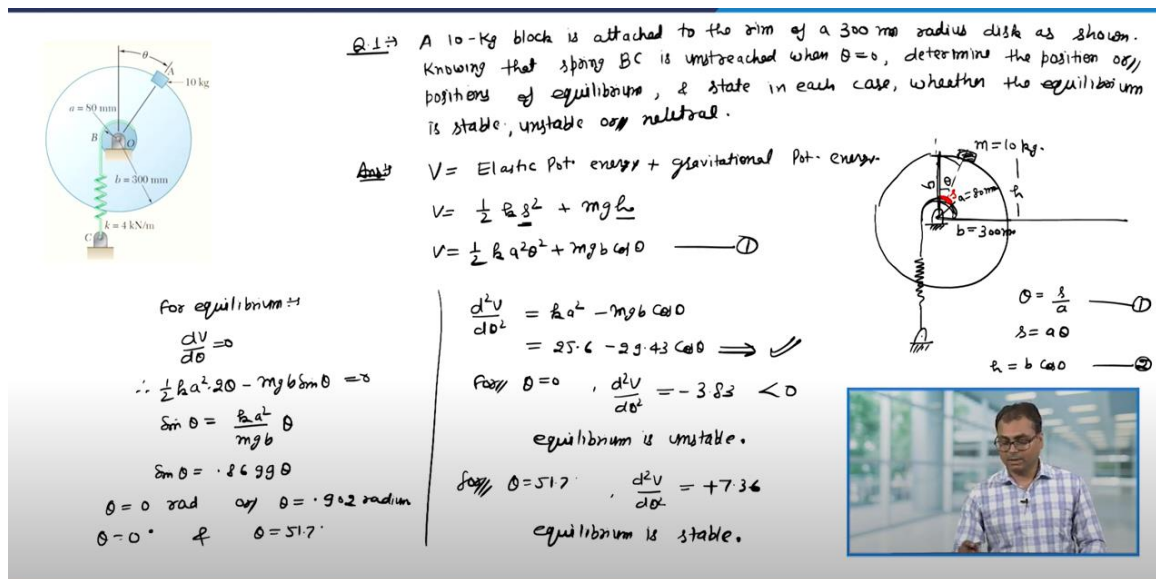 Q.1:→ A 10-Kg block is attached to the rim of a 300 mm radius disk as shown.
Knowing that spring BC is unstreached when θ=0, determine the position or
positions of equilibrium, & state in each case, wheather the equilibrium
is stable, unstable or neletral.
θ
A
10 kg
a = 80 mm
B
O
b = 300 mm
k = 4 kN/m
C
Ans:
V = Elastic Pot. energy + gravitational Pot. energy.
V = 1/2 k s² + mgh
V = 1/2 k a²θ² + mgb cosθ —— ①
m = 10 kg.
b
θ
s
a=80mm
h
b=300mm
θ = s/a —— ①
s = aθ
h = b cosθ —— ②
For equilibrium:→
dV/dθ = 0
∴ 1/2 ka²·2θ - mgb Sinθ = 0
Sinθ = ka²/mgb θ
Sinθ = .8699θ
θ = 0 rad or θ = .902 radium
θ = 0° & θ = 51.7°
d²V/dθ² = ka² - mgb cosθ
= 25.6 - 29.43 cosθ ⟹ ✓
For θ=0, d²V/dθ² = -3.83 <0
equilibrium is unstable.
for θ=51.7°, d²V/dθ² = +7.36
equilibrium is stable.